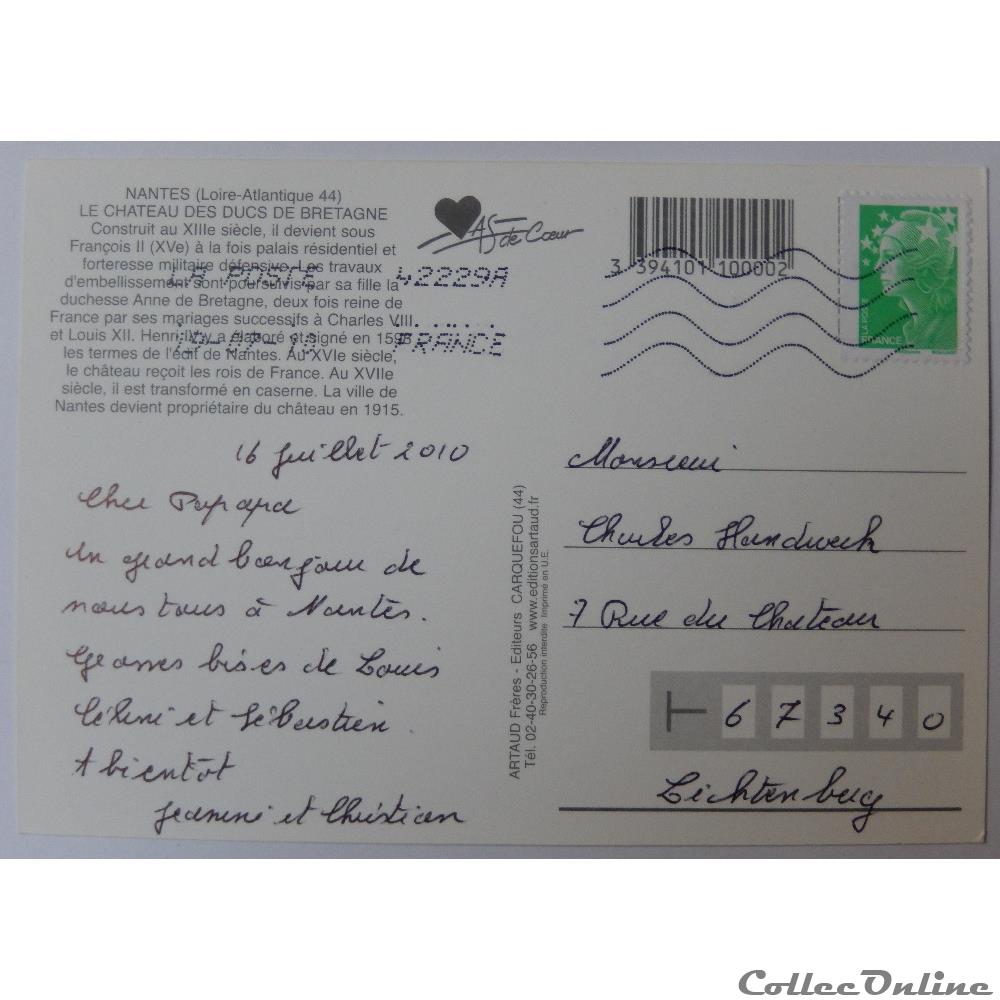 NANTES (Loire-Atlantique 44)
LE CHATEAU DES DUCS DE BRETAGNE
Construit au XIIIe siècle, il devient sous
François II (XVe) à la fois palais résidentiel et
forteresse militaire défensive. Les travaux
d'embellissement sont poursuivis par sa fille la
duchesse Anne de Bretagne, deux fois reine de
France par ses mariages successifs à Charles VIII
et Louis XII. Henri IV y a élaboré et signé en 1598
les termes de l'édit de Nantes. Au XVIe siècle,
le château reçoit les rois de France. Au XVIIe
siècle, il est transformé en caserne. La ville de
Nantes devient propriétaire du château en 1915.
AS de Cœur
3 394101 100002
LA POSTE 42229A
FRANCE
LA POSTE
FRANCE
16 Juillet 2010
Cher Papapa
un grand bonjour de
nous tous à Nantes.
Grosses bises de Louis
Céline et Sébastien.
A bientôt
Jeannine et Christian
ARTAUD Frères - Editeurs CARQUEFOU (44)
Tél. 02-40-30-26-56 www.editionsartaud.fr
Reproduction interdite Imprimé en U.E.
Monsieur
Charles Handwerk
7 Rue du Chateau
67340
Lichtenberg
CollecOnline